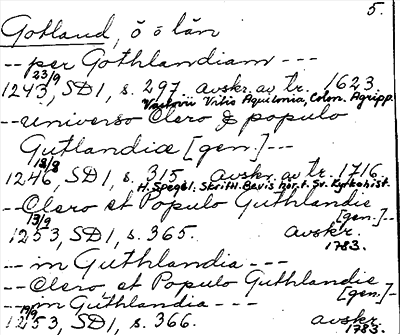 5.
Gotland, ö o län
-- per Gothlandiam ---
23/9
1243, SD1, s. 297. avskr. av tr. 1623.
Vastovii Vitis Aquilonia, Colon. Agripp.
-- universo Clero & populo
Gutlandiæ [gen.] ---
13/8
1246, SD1, s. 315. avskr. av tr. 1716.
H. Spegel. Skriftl. Bevis hör. t. Sv. Kyrkohist.
-- Clero et Populo Guthlandie
[gen.] --
13/9
1253, SD1, s. 365. avskr.
1783.
--- in Guthlandia ---
-- Clero et Populo Guthlandie
[gen.] --
--- in Guthlandia ---
1253, SD1, s. 366. avskr.
1783.